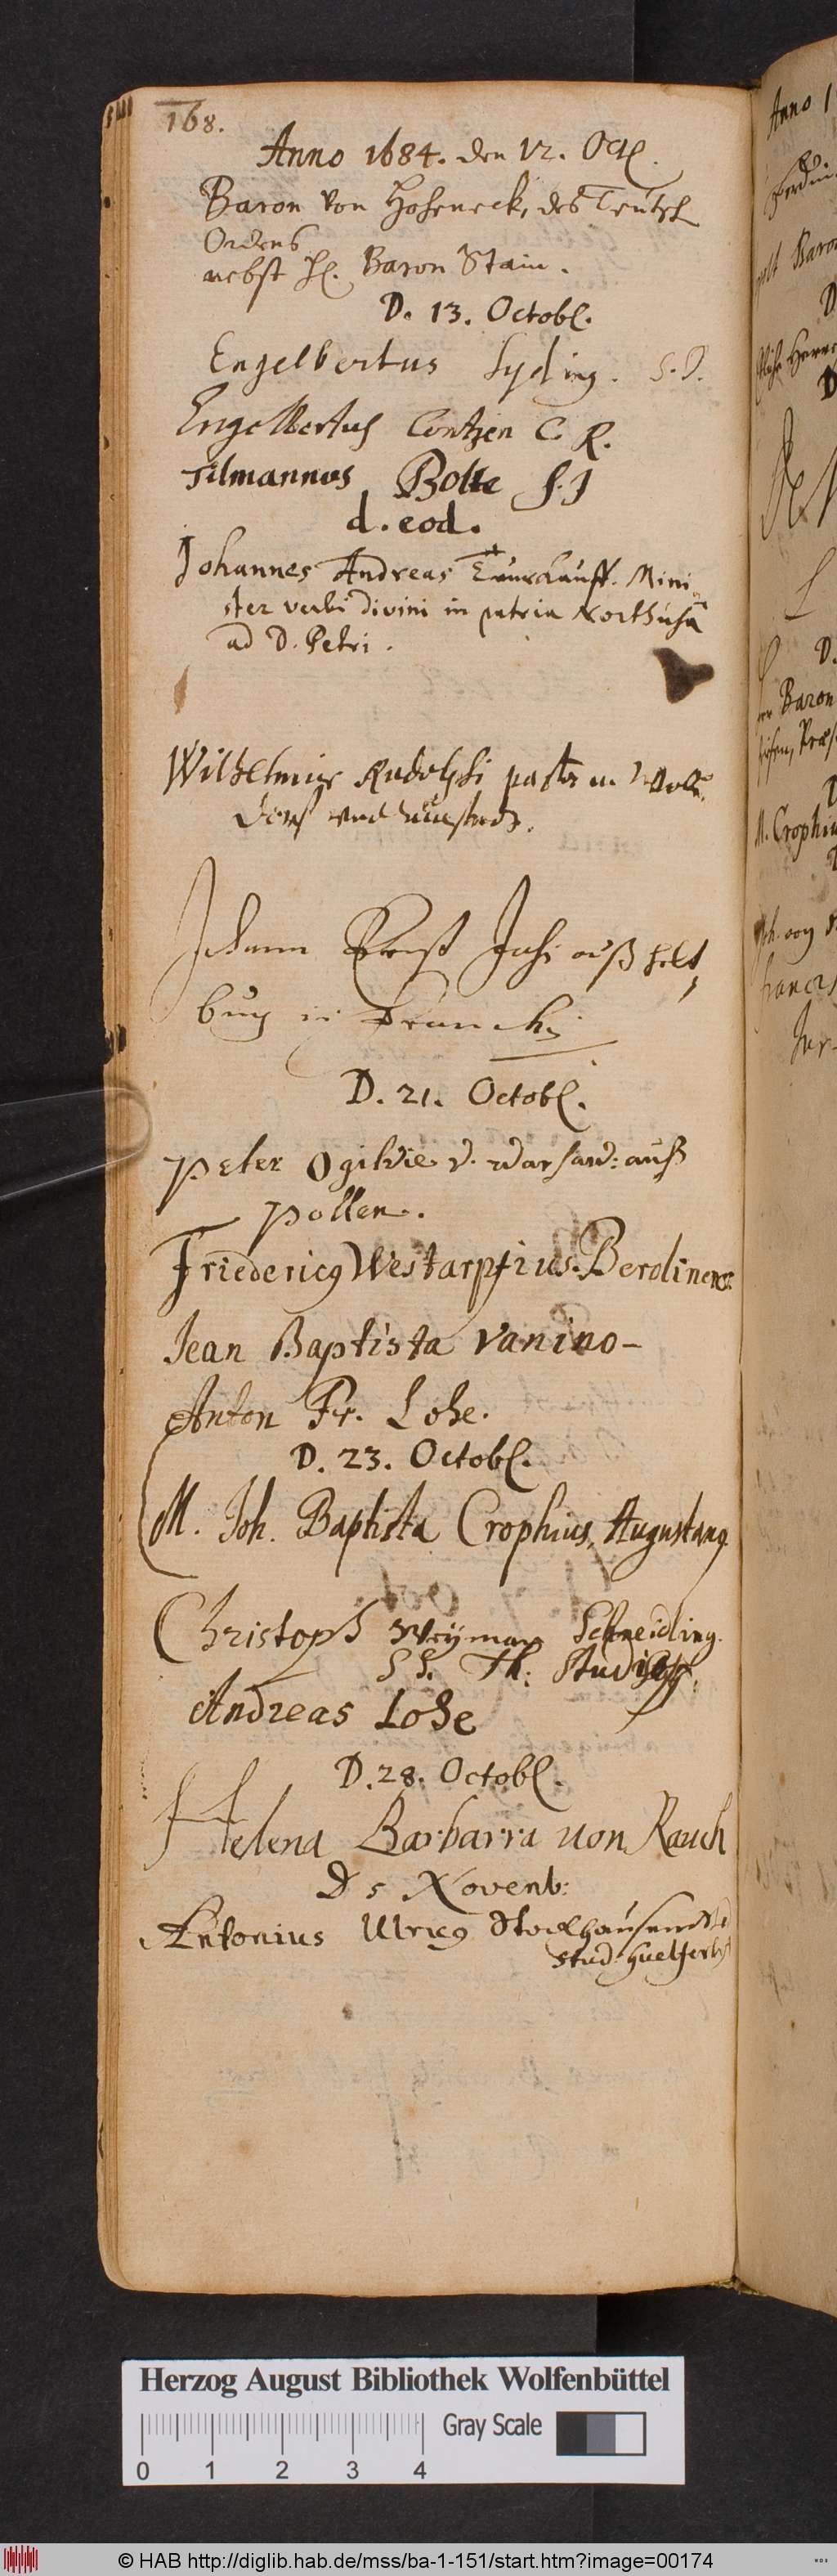 168.
Anno 1684. den 12. Oct.
Baron von Hoheneck, des Teutsch
Ordens
nebst H. Baron Stain.
D. 13. Octobr.
Engelbertus Lyding. S.J.
Engelbertus Contzen C. R.
Tilmannus Bolte S.J
d. eod.
Johannes Andreas Mini
ster verbi divini in patria Northusa
ad D. Petri.
Wilhelmus Rudolphi pastor in
dorf und
Johann Ernst auß Helt,
burg in Francken
D. 21. Octobr.
Peter Ogilvie v. Warsaw: auß
Pollen.
Fridericus Westarpfius. Berolinens.
Jean Baptista Vanino-
Anton Fr. Lohe.
D. 23. Octobr.
M. Joh. Baptista Crophius, Augustanus
Christoph Weyman Schneidling.
SS. Th: Studios.
Andreas Lohe
D. 28. Octobr.
Helena Barbarra von Rauch
D 5 Novenb:
Antonius Ulricus Stockhausen
Stud. Guelferb
Anno 1
Baron
D
D
D.
Baron
M. Crophiu
Herzog August Bibliothek Wolfenbüttel
Gray Scale
0 1 2 3 4
© HAB http://diglib.hab.de/mss/ba-1-151/start.htm?image=00174